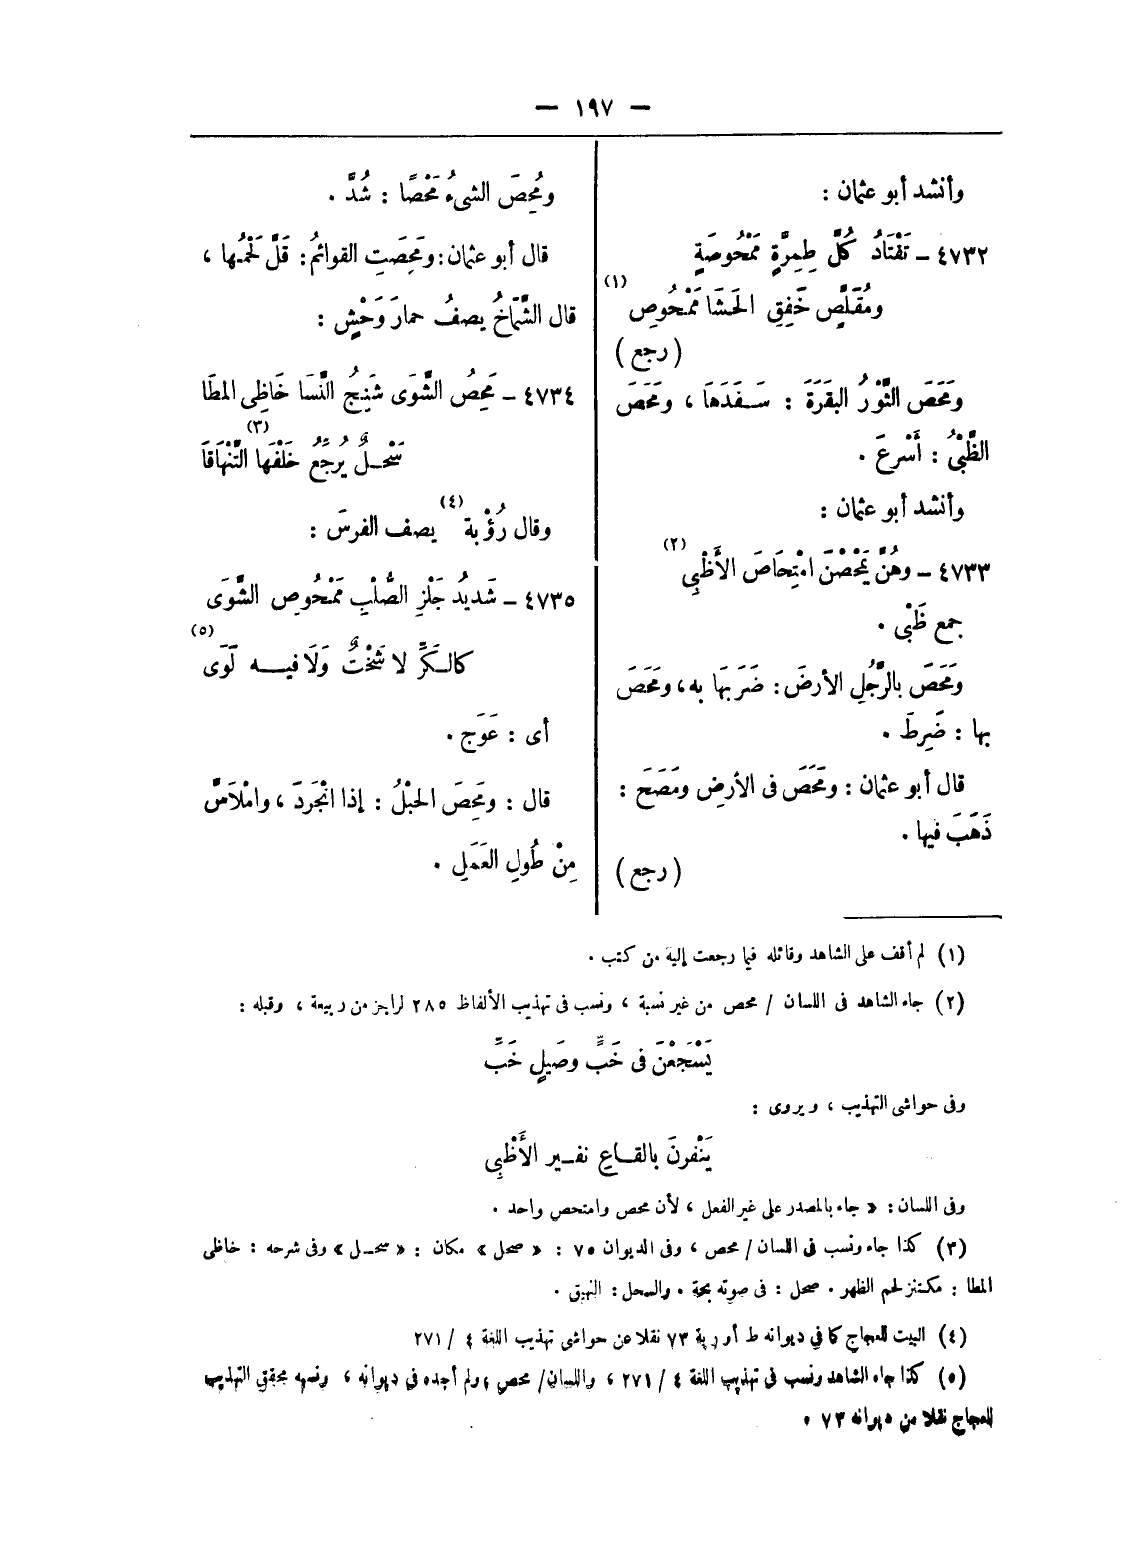 — ١٩٧ —
وأنشد أبو عثمان :
٤٧٣٢ ـ تَقْتَادُ كُلَّ طِمِرَّةٍ مَمْحُوصَةٍ
ومُقَلِّصٍ خَفِقِ الحَشَا مَمْحُوصِ (١)
( رجع )
ومَحَصَ الثَّوْرُ البَقَرَةَ : سَـفَدَهَا ، ومَحَصَ
الظَّبْىُ : أَسْرعَ .
وأنشد أبو عثمان :
٤٧٣٣ ـ وهُنَّ يَمْحَصْنَ امْتِحَاصَ الأَظْبِى (٢)
جمع ظَبْى .
ومَحَصَ بالرَّجُلِ الأرضَ : ضَرَبَهَا به ، ومَحَصَ
بها : ضَرِطَ .
قال أبو عثمان : ومَحَصَ فى الأرضِ ومَصَحَ :
ذَهَبَ فيها .
( رجع )
ومُحِصَ الشىءُ مَحْصًا : شُدَّ .
قال أبو عثمان : ومَحِصَتِ القوائمُ : قَلَّ لَحْمُـها ،
قال الشَّمَّاخُ يصفُ حمارَ وَحْشٍ :
٤٧٣٤ ـ مَحِصُ الشَّوَى شَنِجُ النَّسَا خَاظِى المطَا
سَحْـلٌ يُرجِّعُ خَلْفَها التَّنْهَاقَا (٣)
وقال رُؤْبة (٤) يصف الفرسَ :
٤٧٣٥ ـ شَديدُ جَلْزِ الصُّلْبِ مَمْحُوصِ الشَّوَى
كالـكَرِّ لا شَخْتٌ وَلَا فيـــه لَوَى (٥)
أى : عَوَج .
قال : ومَحِصَ الحَبْلُ : إذا انْجَردَ ، وامْلَاسَّ
مِنْ طُولِ العَمَلِ .
(١) لم أقف على الشاهد وقائله فيما رجعت إلية من كتب .
(٢) جاء الشاهد فى اللسان / محص من غير نسبة ، ونسب فى تهذيب الألفاظ ٢٨٥ لراجز من ربيعة ، وقبله :
يَسْجَعْنَ فى خَبٍّ وصَيلٍ خَبِّ
وفى حواشى التهذيب ، ويروى :
يَنْفرنَ بالقــاعِ نفـير الأَظْبِى
وفى اللسان : « جاء بالمصدر على غير الفعل ، لأن محص وامتحص واحد .
(٣) كذا جاء ونسب فى اللسان / محص ، وفى الديوان ٧٥ : « صحل » مكان : « سحـل » وفى شرحه : خاظى
المطا : مكتنز لحم الظهر . صحل : فى صوته بحة . والسحل : النهيق .
(٤) البيت للعجاج كما في ديوانه ط أوربة ٧٣ نقلا عن حواشى تهذيب اللغة ٤ / ٢٧١
(٥) كذا جاء الشاهد ونسب فى تهذيب اللغة ٤ / ٢٧١ ، واللسان / محص ولم أجده فى ديوانه ، ونسبه محققى التهذيب
للعجاج نقلا من ديوانه ٧٣ .